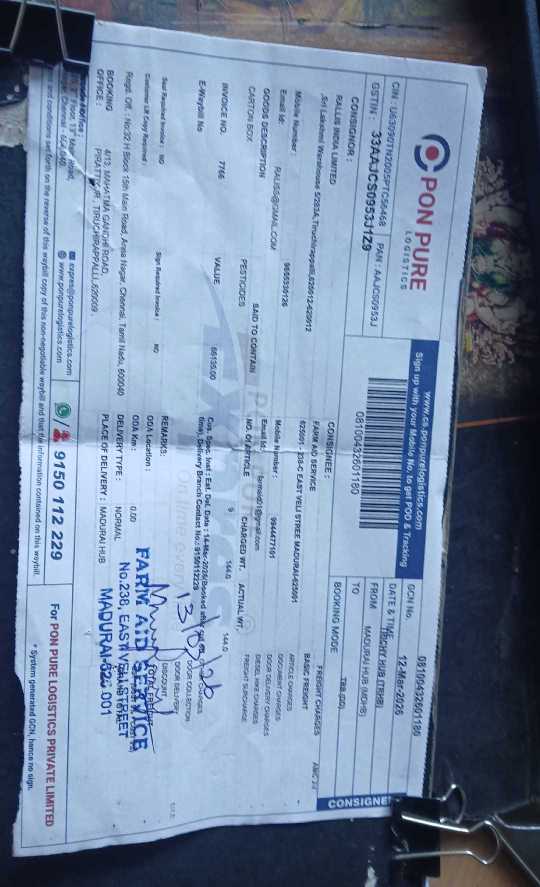 PON PURE
LOGISTICS
www.cs.ponpurelogistics.com
Sign up with your Mobile No. to get POD & Tracking
CIN : U63090TN2005PTC56468
PAN : AAJCS0953J
GSTIN : 33AAJCS0953J1Z8
08100432601180
GCN No. 08100432601180
DATE & TIME 12-Mar-2026
FROM TRICHY HUB (TRHB)
TO MADURAI HUB (MDHB)
BOOKING MODE
CONSIGNOR :
RALLIS INDIA LIMITED
,Sri Lakshmi Warehouse 5/283A,Tiruchirappalli,620012-620012
Mobile Number : 9655336126
Email Id: RALISG@GMAIL.COM
CONSIGNEE :
FARM AID SERVICE
625001 238-C EAST VELI STREE MADURAI-625001
Mobile Number : 9944477101
Email Id: farmaid01@gmail.com
GOODS DESCRIPTION
SAID TO CONTAIN
NO. OF ARTICLE
CHARGED WT.
ACTUAL WT.
CARTON BOX
PESTICIDES
9
144.0
144.0
INVOICE NO. 7766
VALUE 66135.00
E-Waybill No
Cus. Spec. Inst : Est. Del. Date : 14-Mar-2026(Booked
time), Delivery Branch Contact No.: 9150112229
FREIGHT CHARGES
BASIC FREIGHT
ARTICLE CHARGES
DOCUMENT CHARGES
DOOR DELIVERY CHARGES
DIESEL HIKE CHARGES
FREIGHT SURCHARGE
CHARGES
DOOR COLLECTION
DOOR DELIVERY
DISCOUNT
Seal Required Invoice : NO
Sign Required Invoice : NO
REMARKS:
Customer LR Copy Required :
ODA Location :
ODA Km : 0.00
Regd. Off. : No:32 H Block 15th Main Road, Anna Nagar, Chennai, Tamil Nadu, 600040
DELIVERY TYPE : NORMAL
BOOKING OFFICE : 4/13, MAHATMA GANDHI ROAD,
PIRATTIYUR, TIRUCHIRAPPALLI,620009 .
PLACE OF DELIVERY : MADURAI HUB
13/3/26
FARM AID SERVICE
No.238, EAST VELI STREET
MADURAI-625 001
Floor, 13th Main Road,
Chennai - 600 040.
expres@ponpurelogistics.com
www.ponpurelogistics.com
9150 112 229
For PON PURE LOGISTICS PRIVATE LIMITED
and conditions set forth on the reverse of this waybill copy of this non-negotiable waybill and that the information contained on this waybill.
* System generated GCN, hence no sign.